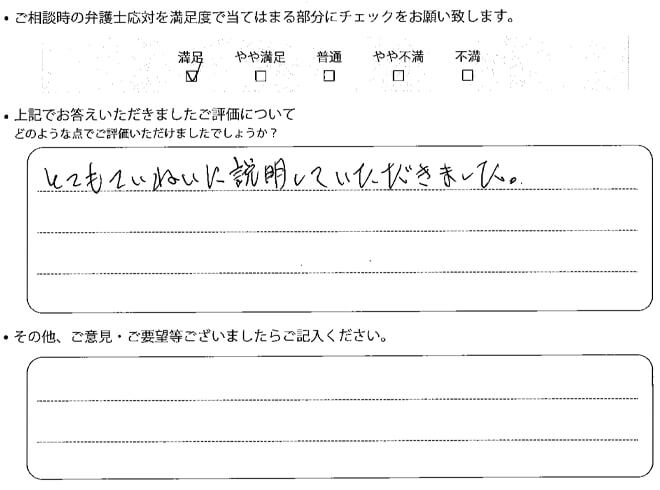 ・ご相談時の弁護士応対を満足度で当てはまる部分にチェックをお願い致します。
満足 やや満足 普通 やや不満 不満
☑ □ □ □ □
・上記でお答えいただきましたご評価について
どのような点でご評価いただけましたでしょうか？
とてもていねいに説明していただきました。
・その他、ご意見・ご要望等ございましたらご記入ください。